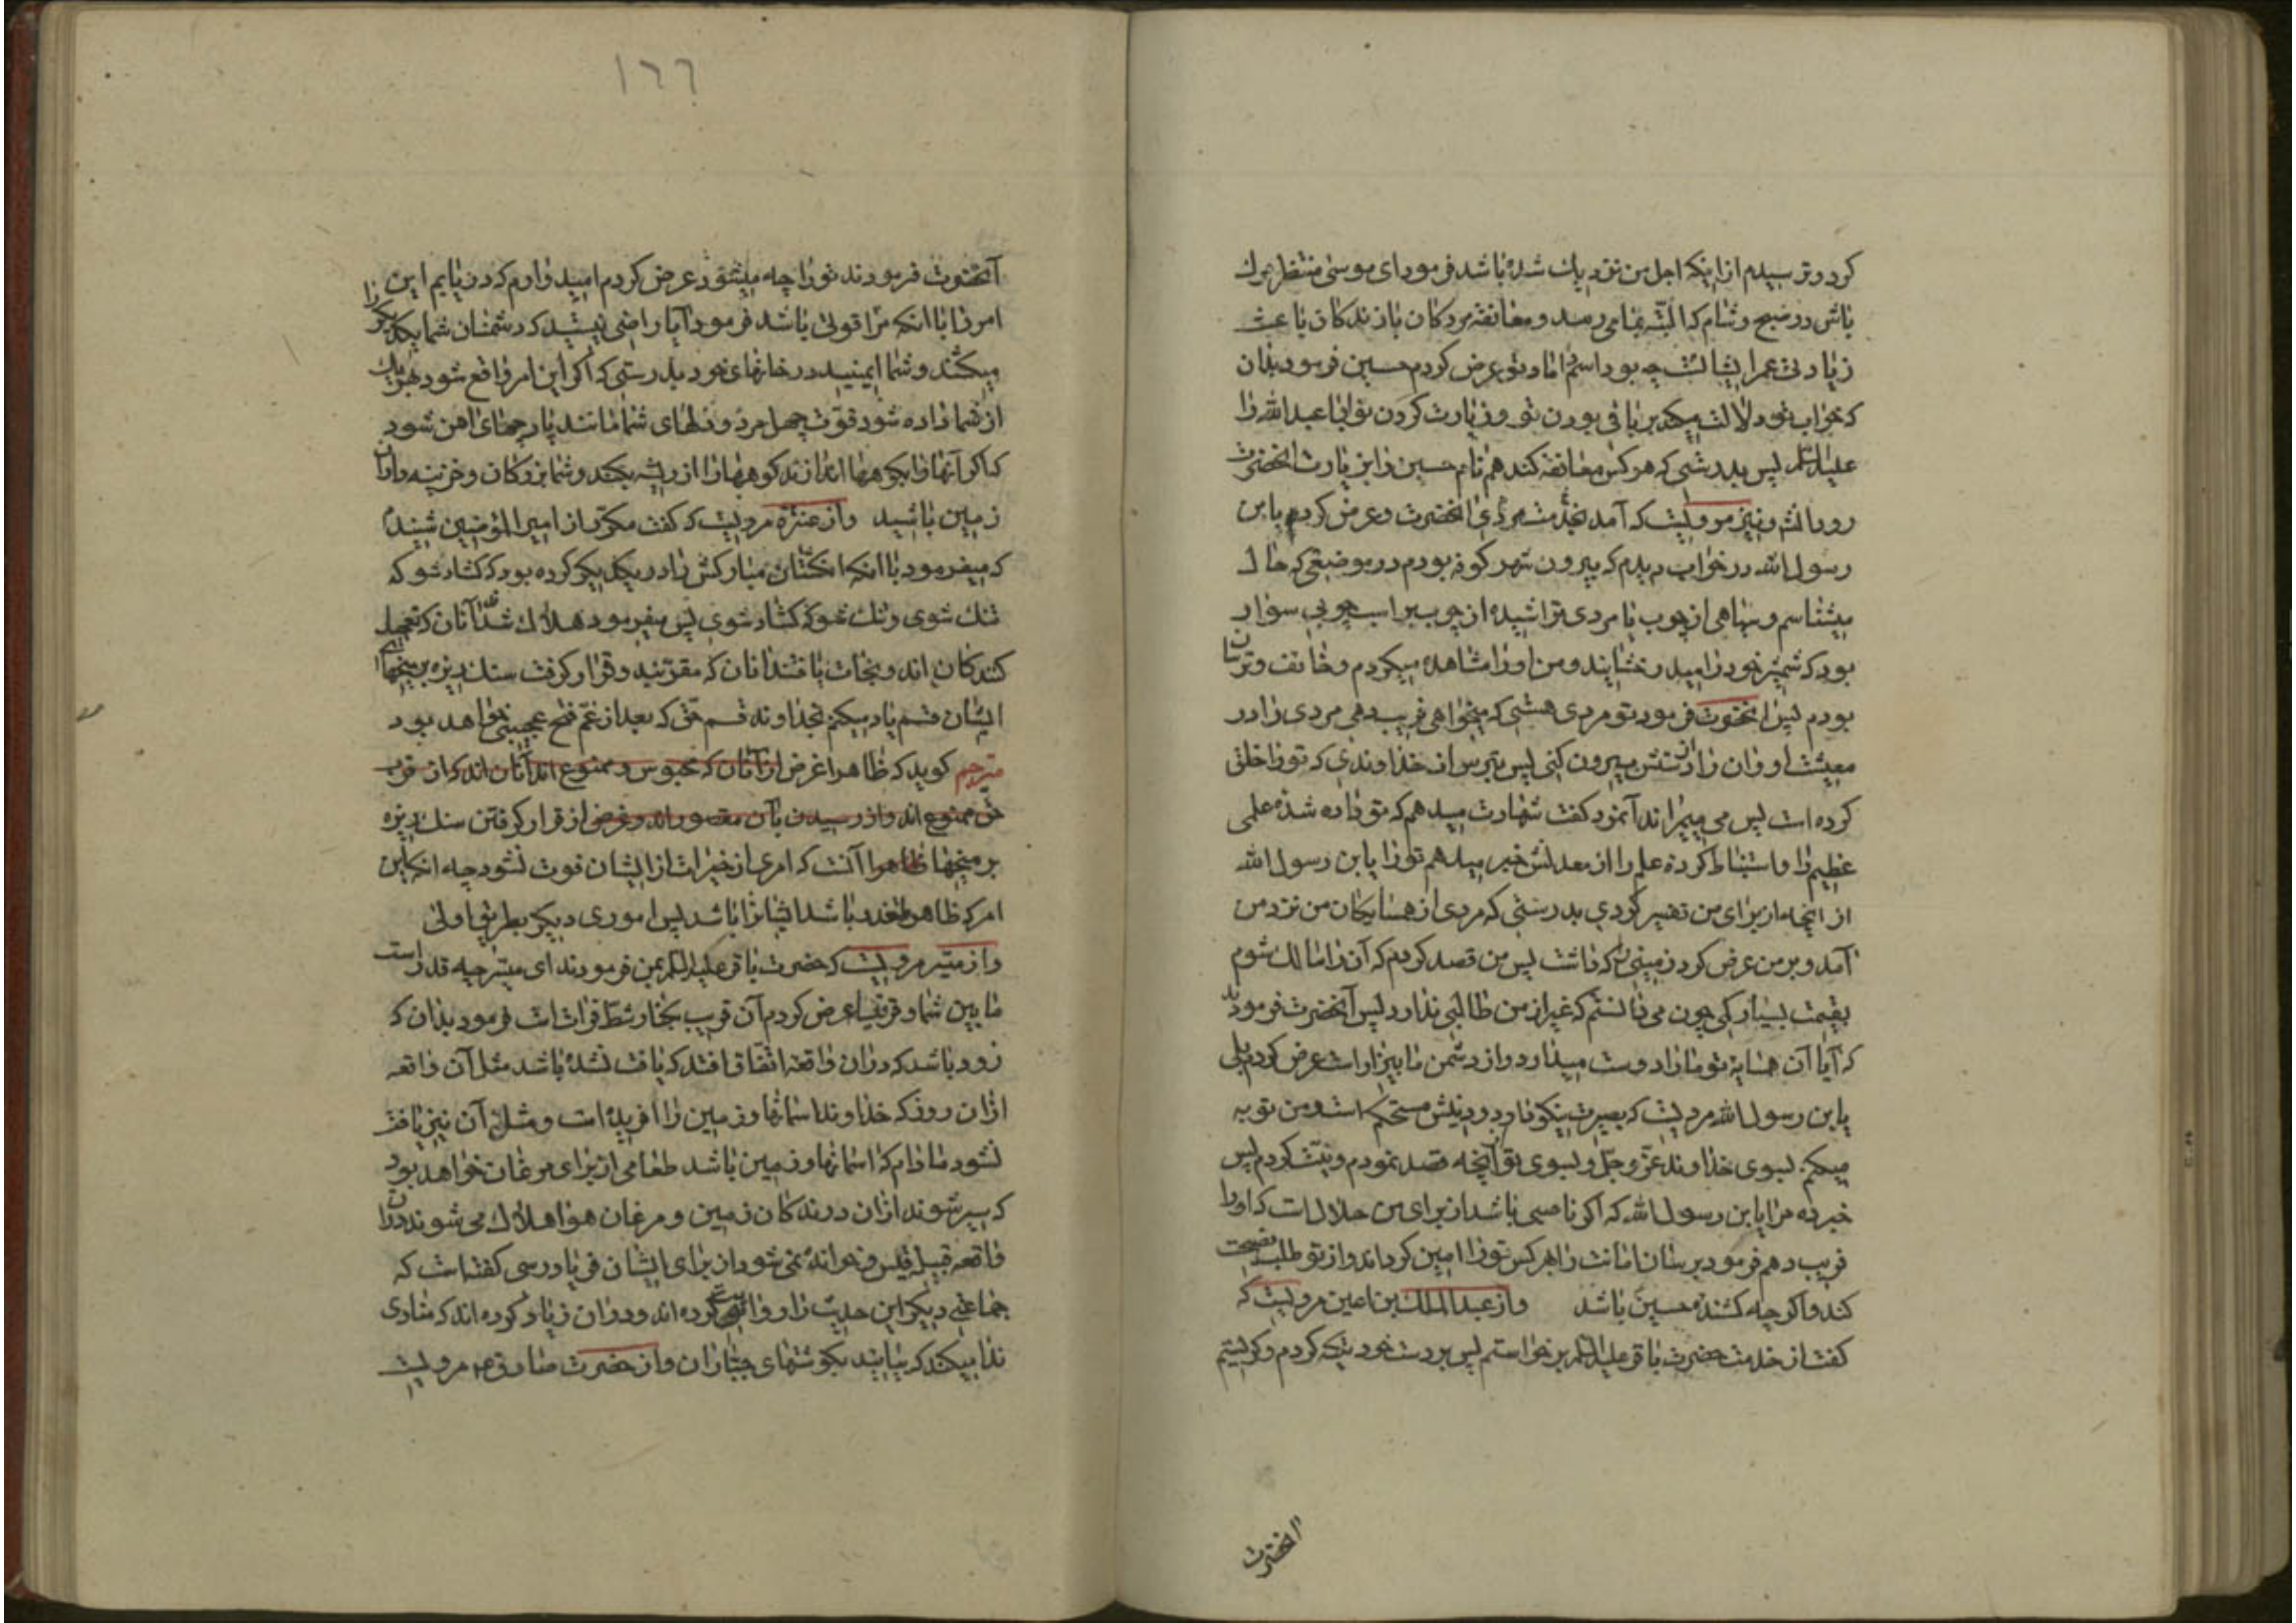 کرد و ترسیدم از اینکه اجل من نزدیک شده باشد فرمود ای موسی منتظر مرک
باش در صبح و شام که البته بما می رسد و معانقه مردکان با زندکان باعث
زیادتی عمر ایشانست چه بود اسم اماو تو عرض کردم حسین فرمود بدان
که خواب تو دلالت میکند بر باقی بودن تو و زیارت کردن تو ابا عبدالله را
علیه السلم پس بدرستی که هر کس معانقه کند هم نام حسین را زیارت انحضرت
رود انشء و نیز مرویست که آمد بخدمت مردی انحضرت و عرض کردم یا بن
رسول الله در خواب دیدم که بیرون شهر کوفه بودم در موضعی که حال
میشناسم و سپاهی از چوب یا مردی تراشیده از چوب بر اسب چوبی سوار
بود که شمشیر خود را میدرخشانید و من او را مشاهده میکردم و خائف و ترسان
بودم پس انحضرت فرمود تو مردی هستی که میخواهی فریب دهی مردی را در
معیشت او و ان را از دستش بیرون کنی پس بترس از خداوندی که تو را خلق
کرده است پس می میراند آنمرد کفت شهادت میدهم که تو داده شده علمی
عظیم را و استنباط کرده علم را از معدنش خبر میدهم تو را یا بن رسول الله
از انچه از برای من تفسیر کردی بدرستی که مردی از همسایکان من نزد من
آمد و بر من عرض کرد زمینی را که داشت پس من قصد کردم که آن را مالک شوم
بقیمت بسیار کمی چون می دانستم که غیر از من طالبی ندارد پس آنحضرت فرمودند
که آیا آن همسایه تو ما را دوست میدارد و از دشمن ما بیزار است عرض کردم بلی
یا بن رسول الله مردیست که بصیرت نیکو دارد و دینش مستحکم است و من توبه
میکنم بسوی خداوند عزّ و جلّ و بسوی تو از آنچه قصد نمودم و نیت کردم پس
خبر ده مرا یا بن رسول الله که اکر ناصبی باشد از برای من حلال است که او را
فریب دهم فرمود برسان امانت را بهر کس تو را امین کرداند و از تو طلب نصیحت
کند و اکر چه کشنده حسین باشد و از عبد الملک بن اعین مرویست که
کفت از خدمت حضرت باقر علیه السلم برخواستم پس بر دست خود تکیه کردم و کریستم
انحضرت
١٦٦
آنحضرت فرمودند تو را چه میشود عرض کردم امید دارم که دریابم این
امر را با انکه مرا قوتی باشد فرمود آیا راضی نیستید که دشمنان شما یکدیکر را
میکشند و شما ایمنید در خانهای خود بدرستی که اکر این امر واقع شود بهر یک
از شما داده شود قوّت چهل مرد و دلهای شما مانند پارچهای اهن شود
که اکر آنها را بکوهها اندازند کوهها را از ریشه بکند و شمائید و کان و خزینه داران
زمین باشید و از عنتره مرویست که کفت مکرّر از امیر المؤمنین شنیدم
که میفرمود با انکه انکشتان مبارکش را در یکدیکر کرده بود که کشاد شو که
تنک شوی و تنک شو که کشاد شوی پس میفرمود هلاک شدند آنان که تعجیل
کنندکان اند و نجات یافتند انان که مقرّبند و قرار کرفت سنک ریزه بر میخهای
ایشان قسم یاد میکنم بخداوند قسم حق که بعد از غم فتح عجیبی خواهد بود
مترجم کوید که ظاهرا غرض از آنان که محبوس و ممنوع اند آنان اند که از قرب
حق ممنوع اند و از رسیدن بآن مقصوراند و غرض از قرار کرفتن سنک ریزه
بر میخها ظاهرا آنست که امری از خیرات از ایشان فوت نشود چه انکه این
امر که ظاهر باشد ایشانرا باشد پس اموری دیکر بطریق اولی
و از میسّر مرویست که حضرت باقر علیه السلم بمن فرمودند ای میسّر چه قدر است
ما بین شما و قرقیسا عرض کردم آن قریب بکنار شطّ فرات است فرمود بدان که
زود باشد که در ان واقعه اتّفاق افتد که یافت نشده باشد مثل آن واقعه
از ان روز که خداوند اسمانها و زمین را افریده است و مثل آن نیز یافت
نشود مادام که اسمانها و زمین باشد طعامی از برای مرغان خواهد بود
که سیر شوند از ان درندکان زمین و مرغان هوا هلاک می شوند در ان
واقعه قبیله قیس و خوانده نمی شود از برای ایشان فریادرسی کفته است که
جماعتی دیکر این حدیث را روایت کرده اند و در ان زیاد کرده اند که منادی
ندا میکند که بیایید بکوشتهای جبّاران و از حضرت صادق ع مرویست